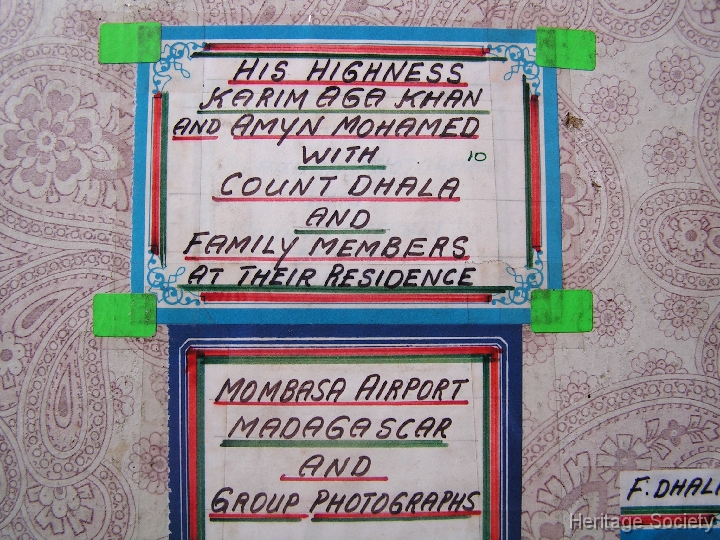 HIS HIGHNESS
KARIM AGA KHAN
AND AMYN MOHAMED
WITH
10
COUNT DHALA
AND
FAMILY MEMBERS
AT THEIR RESIDENCE
MOMBASA AIRPORT
MADAGASCAR
AND
GROUP PHOTOGRAPHS
F. DHAL
Heritage Society